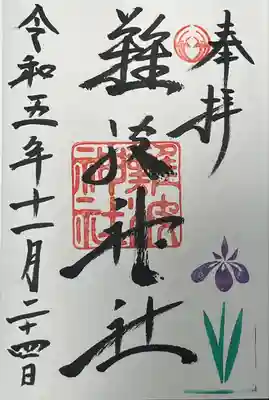 奉拝
難波神社
難波神社
令和五年十一月二十四日